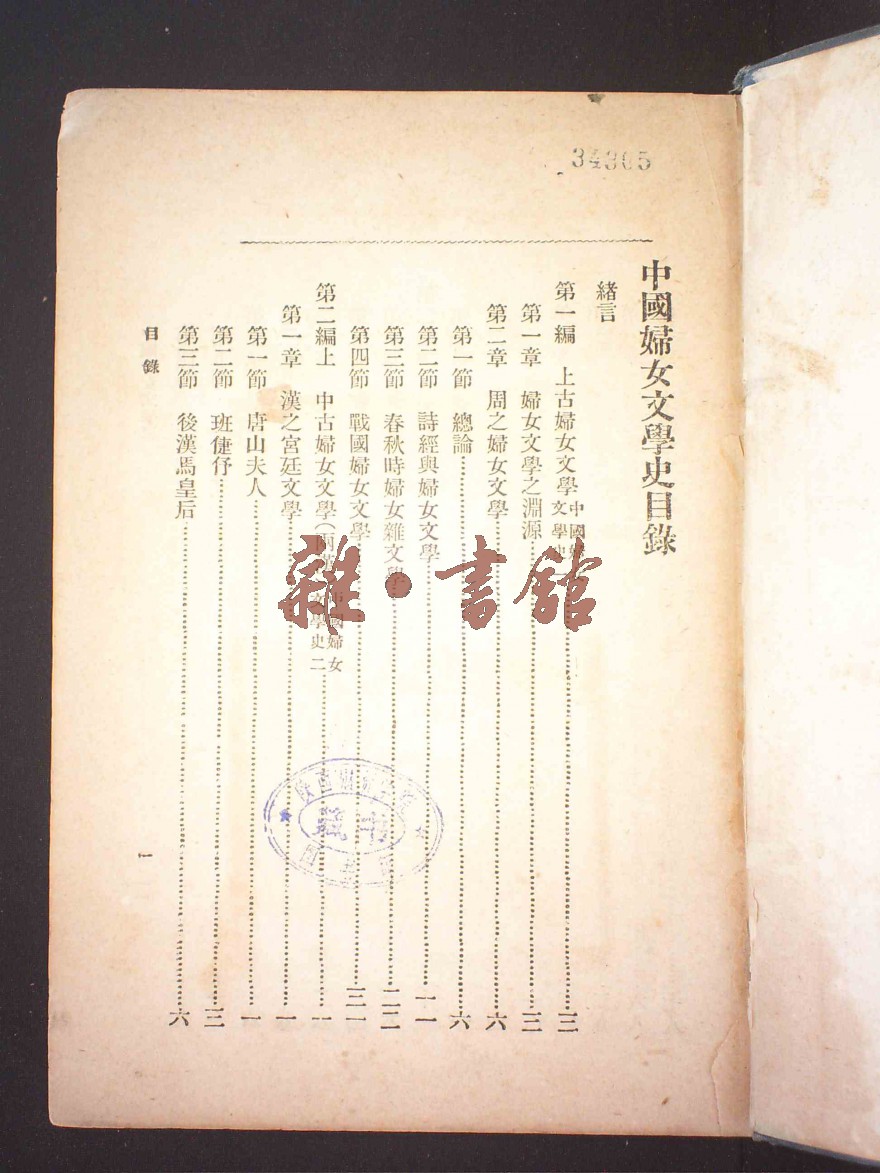 34305
中國婦女文學史目錄
緒言
第一編 上古婦女文學 中國 文學史 三
第一章 婦女文學之淵源 三
第二章 周之婦女文學 六
第一節 總論 六
第二節 詩經與婦女文學 一一
第三節 春秋時婦女雜文學 二二
第四節 戰國婦女文學 三一
第二編上 中古婦女文學(兩漢 中國婦女文學史二 一
第一章 漢之宮廷文學 一
第一節 唐山夫人 一
第二節 班倢伃 三
第三節 後漢馬皇后 六
目錄
一
雜·書館